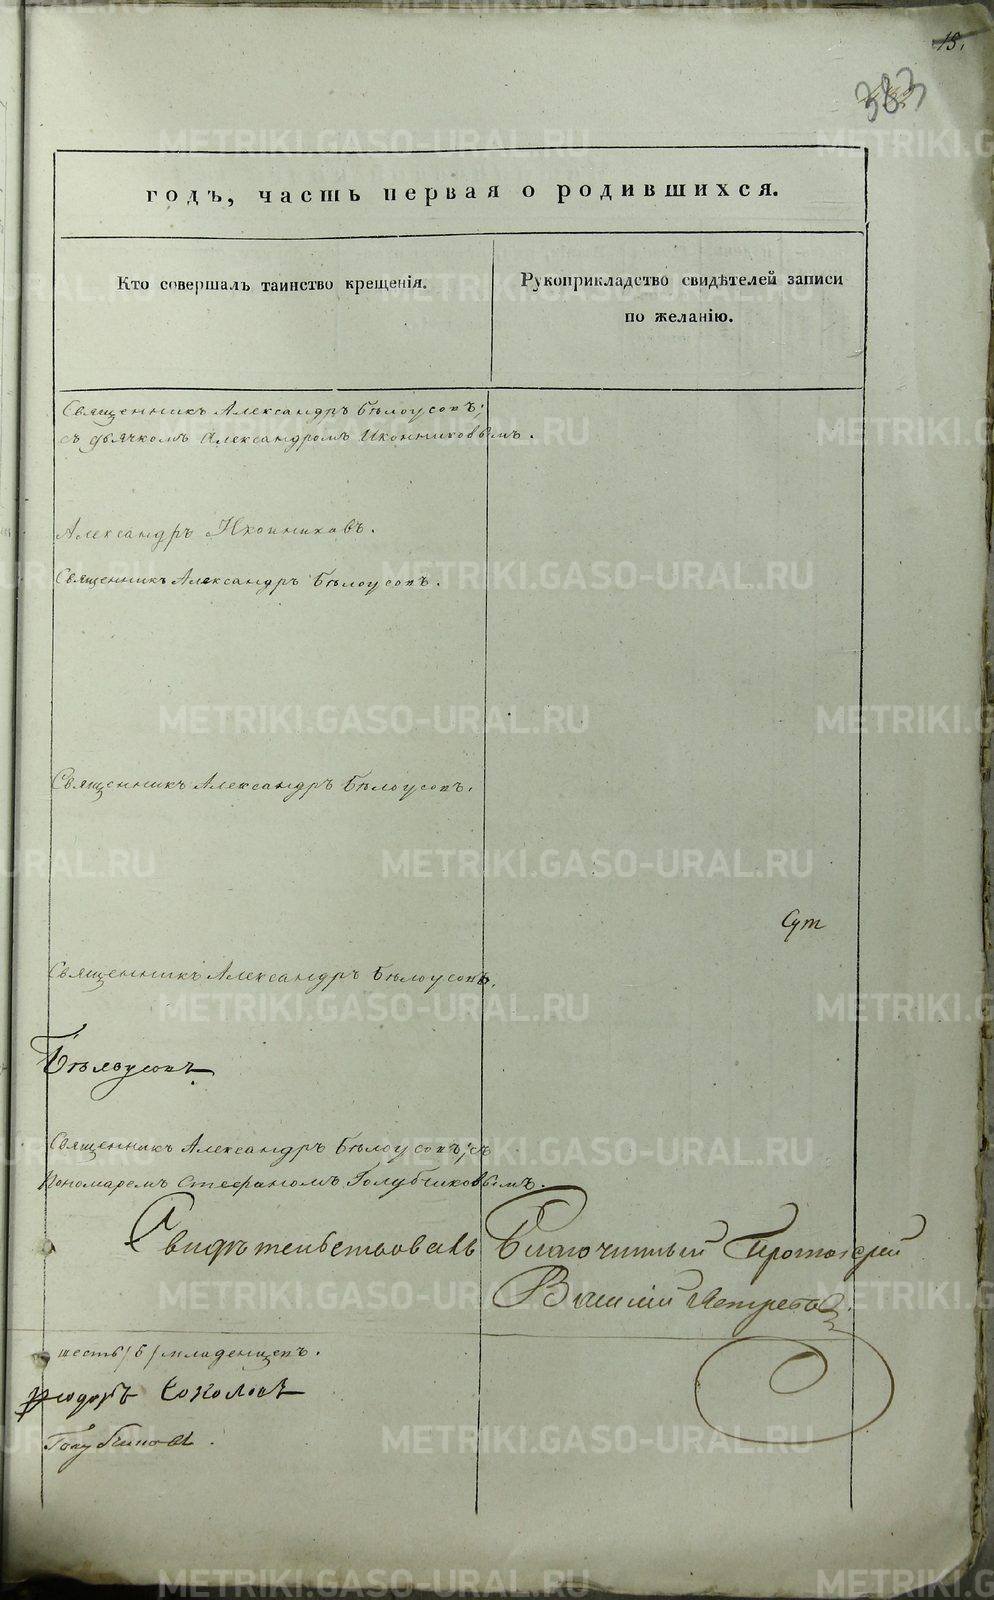 15.
383
годъ, часть первая о родившихся.
Кто совершалъ таинство крещенія.
Рукоприкладство свидѣтелей записи
по желанію.
Священникъ Александръ Бѣлоусовъ,
съ дьячкомъ Александромъ Иконниковымъ.
Александръ Иконниковъ.
Священникъ Александръ Бѣлоусовъ.
Священникъ Александръ Бѣлоусовъ.
Священникъ Александръ Бѣлоусовъ.
Бѣлоусовъ
Священникъ Александръ Бѣлоусовъ, съ
Пономаремъ Стефаномъ Голубчиковымъ.
Свидѣтельствовалъ Благочинный Протоіерей
Василий Ястребовъ.
шесть /6/ младенцевъ.
Ѳеодоръ Соколовъ
Голубчиковъ.
METRIKI.GASO-URAL.RU